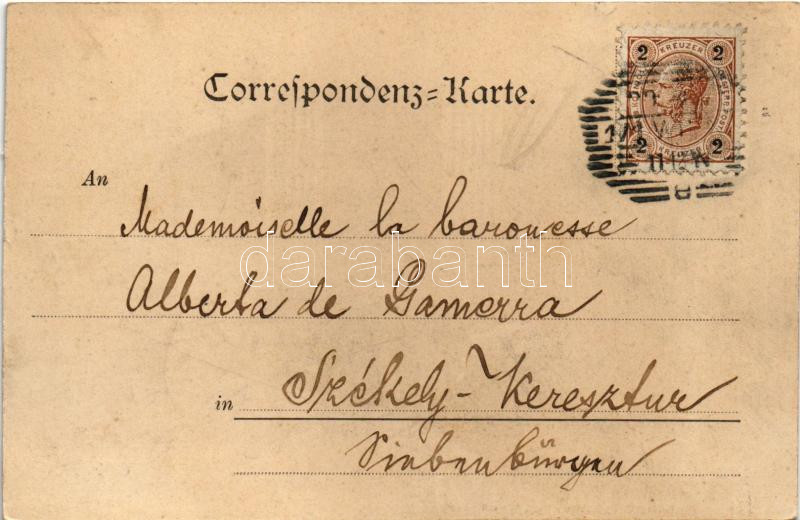 2 KREUZER 2
2 KREUZER 2
Correspondenz=Karte.
An
Mademoiselle la baronesse
darabanth
Alberta de Gamerra
in Székely-Keresztur
Siebenbürgen